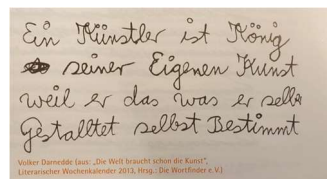 Ein Künstler ist König
seiner Eigenen Kunst
weil er das was er selbst
Gestalltet selbst Bestimmt
Volker Darnedde (aus: „Die Welt braucht schon die Kunst",
Literarischer Wochenkalender 2013, Hrsg.: Die Wortfinder e.V.)